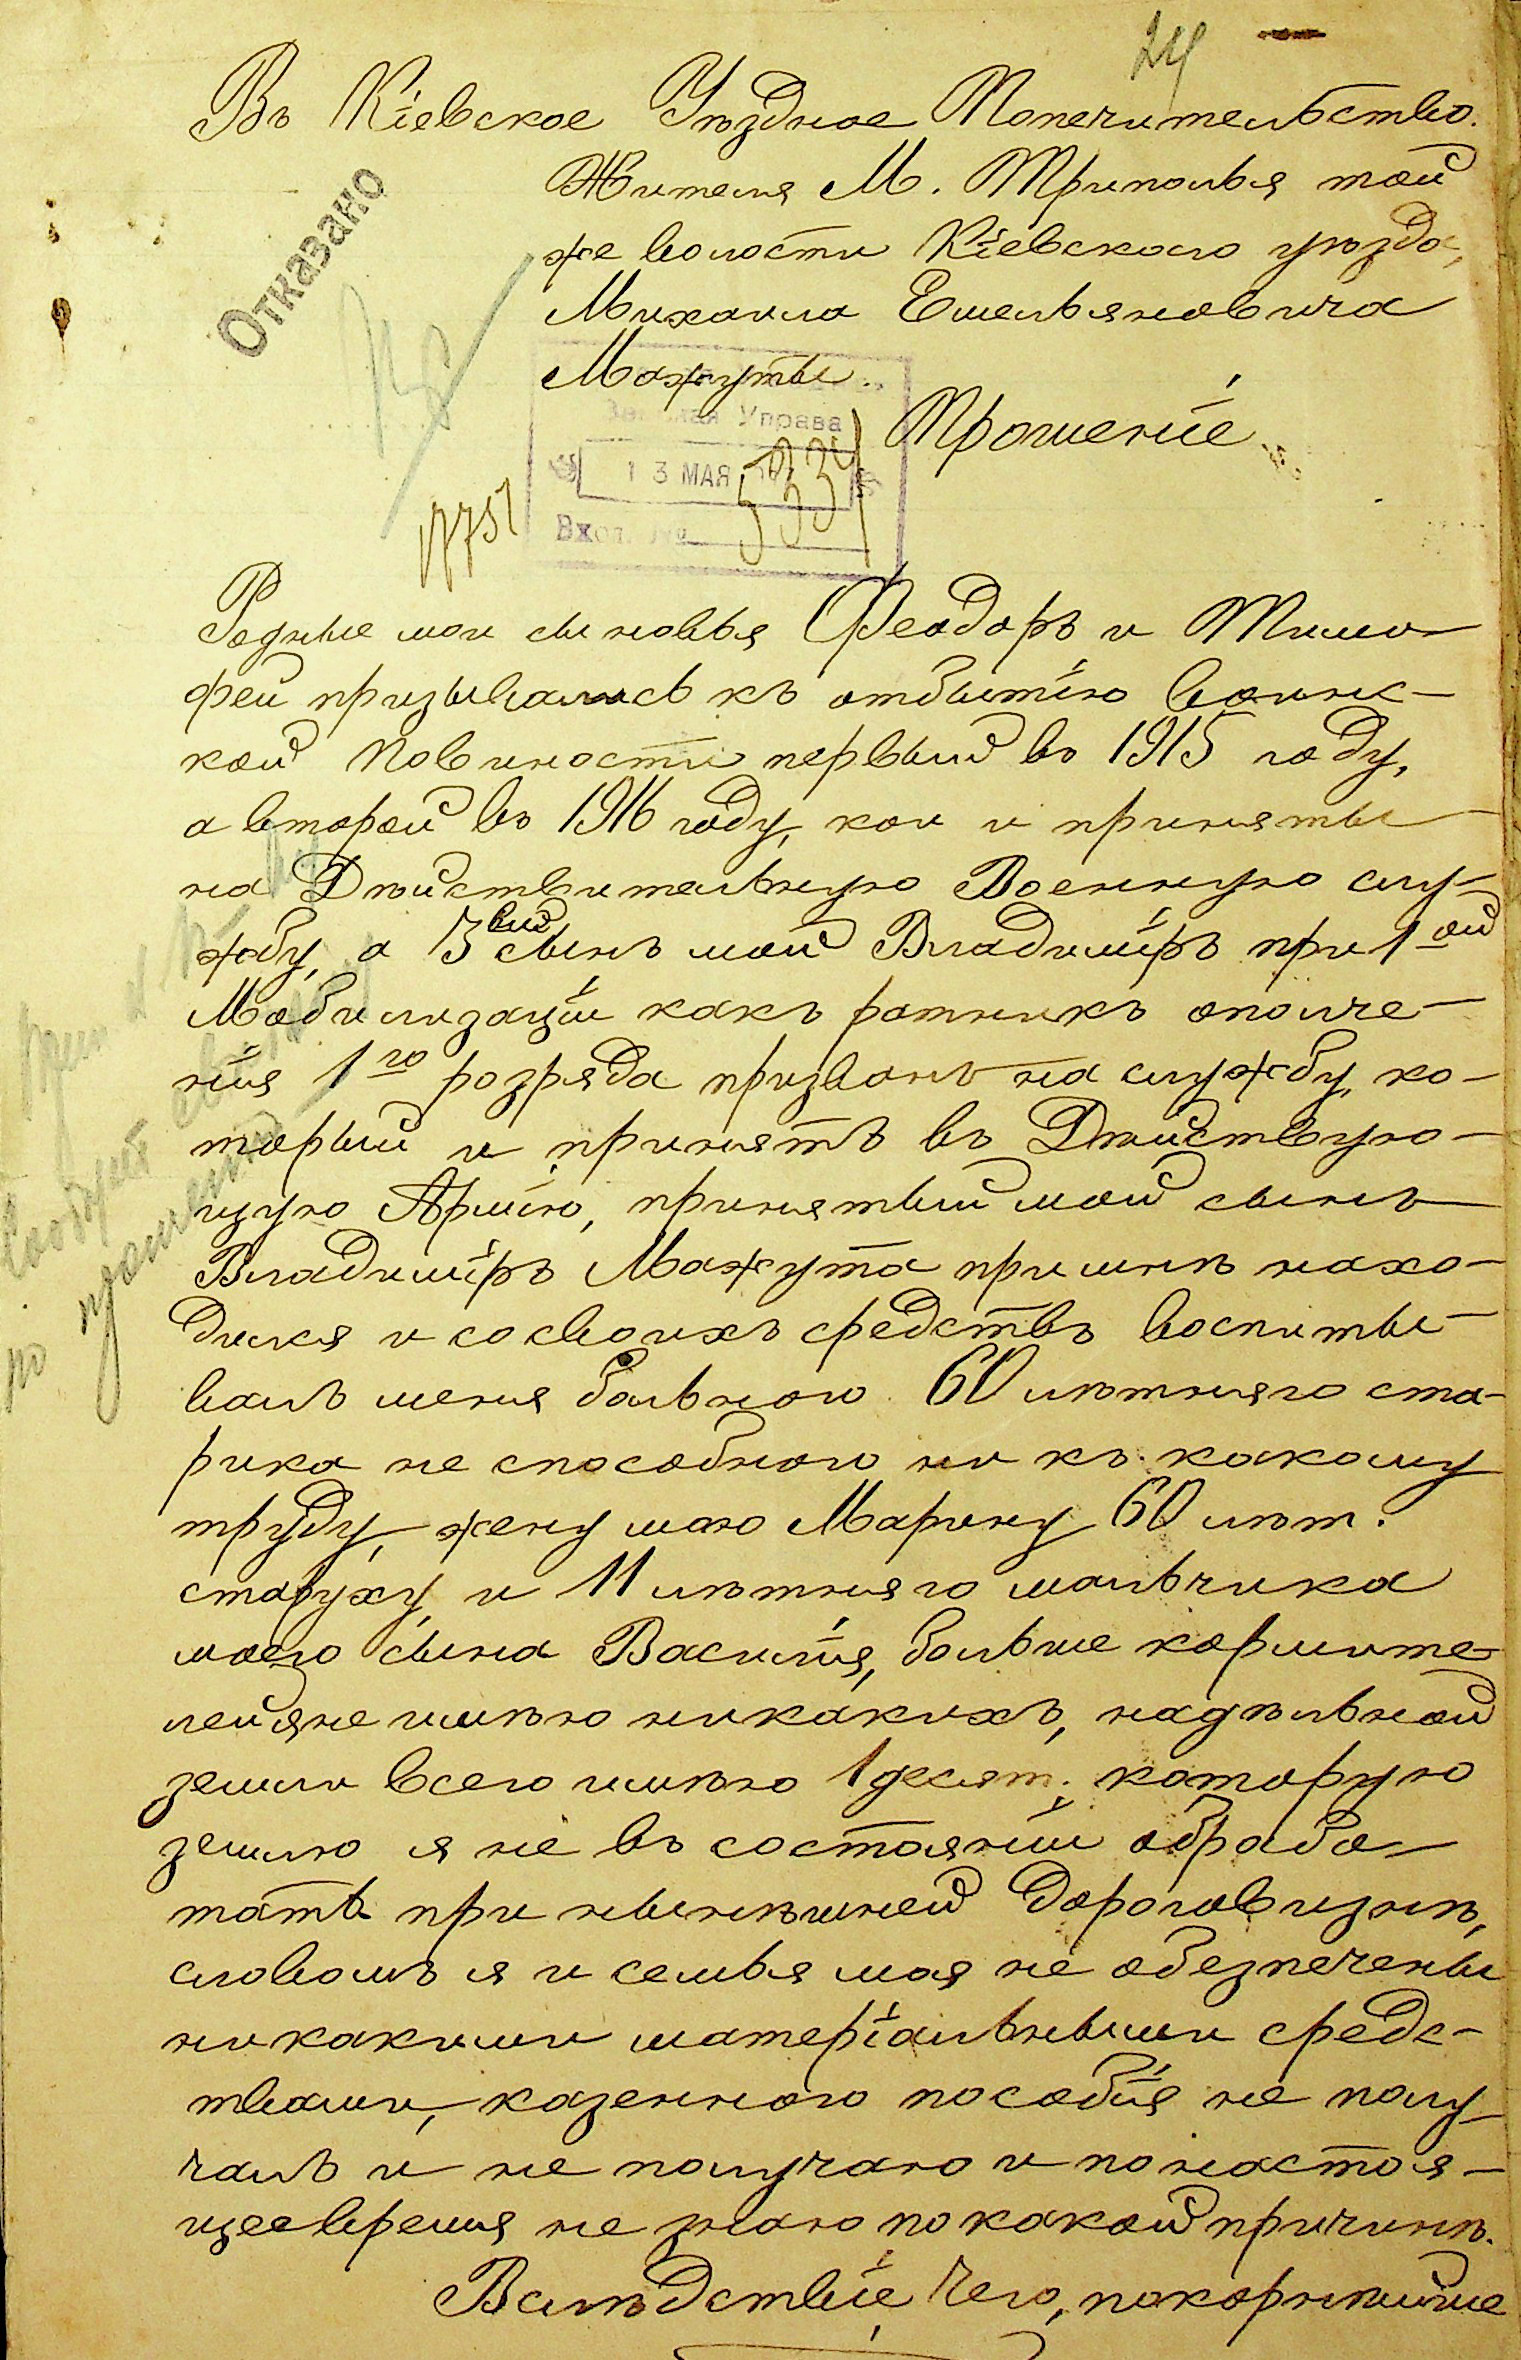 24
Въ Кіевское Уѣздное Попечительство.
Жителя М. Триполья той
же волости Кіевскаго уѣзда,
Михаила Емельяновича
Мажуты.
Отказано
Прошеніе
Управа
13 МАЯ
5334
Вход. №
17751
Родные мои сыновья Феодоръ и Тимо-
фей призывались къ отбытію воинс-
кой повиности первый въ 1915 году,
а второй въ 1916 году, кои и приняты
на Дѣйствительную Военную слу-
жбу, а 3вий сынъ мой Владиміръ при 1ой
Мобилизаціи какъ ратникъ ополче-
нія 1го розряда призванъ на службу, ко-
торый и принятъ въ Дѣйствую-
щую Армію, принятый мой сынъ
Владиміръ Мажута при мнѣ нахо-
дился и со своихъ средствъ воспиты-
валъ меня больного 60 лѣтняго ста-
рика не способного ни къ какому
труду, жену мою Марину 60 лѣт.
старуху, и 11 лѣтняго мальчика
моего сына Василія, больше кормите-
лей я не имѣю никакихъ, надѣльной
земли всего имѣю 1 десят. которую
землю я не въ состояніи обрабо-
тать при нынѣшней дороговизнѣ,
словомъ я и семья моя не обезпечены
никакими матеріальными средс-
твами, казенного пособія не полу-
чалъ и не получаю и по настоя-
щее время не знаю по какой причинѣ.
Вслѣдствіе чего, покорнѣйше